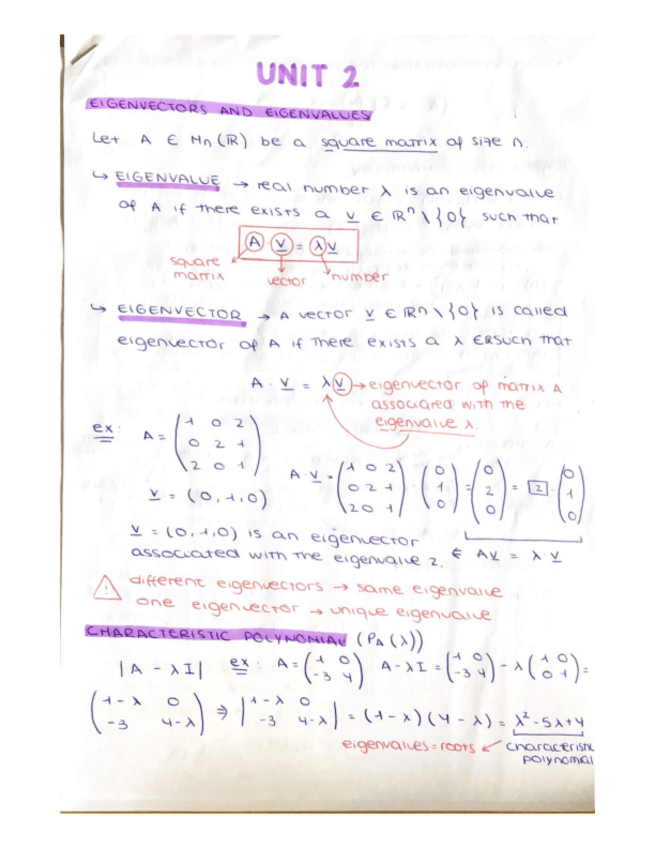 UNIT 2
EIGENVECTORS AND EIGENVALUES
Let A ∈ Mn(ℝ) be a square matrix of size n.
↳ EIGENVALUE → real number λ is an eigenvalue
of A if there exists a v ∈ ℝⁿ \ {0} such that
A · v = λv
square matrix
vector
number
↳ EIGENVECTOR → A vector v ∈ ℝⁿ \ {0} is called
eigenvector of A if there exists a λ ∈ ℝ such that
A · v = λv → eigenvector of matrix A
associated with the
eigenvalue λ.
ex: A = (1 0 2 / 0 2 1 / 2 0 1)
v = (0,1,0)
A · v = (1 0 2 / 0 2 1 / 2 0 1) · (0 / 1 / 0) = (0 / 2 / 0) = 2 · (0 / 1 / 0)
v = (0,1,0) is an eigenvector
associated with the eigenvalue 2. ⇐ Av = λ · v
! different eigenvectors → same eigenvalue
one eigenvector → unique eigenvalue
CHARACTERISTIC POLYNOMIAL (PA(λ))
|A - λI| ex: A = (1 0 / -3 4) A - λI = (1 0 / -3 4) - λ (1 0 / 0 1) =
(1-λ 0 / -3 4-λ) ⇒ |1-λ 0 / -3 4-λ| = (1-λ)(4-λ) = λ² - 5λ + 4
eigenvalues = roots ↙ characteristic
polynomial